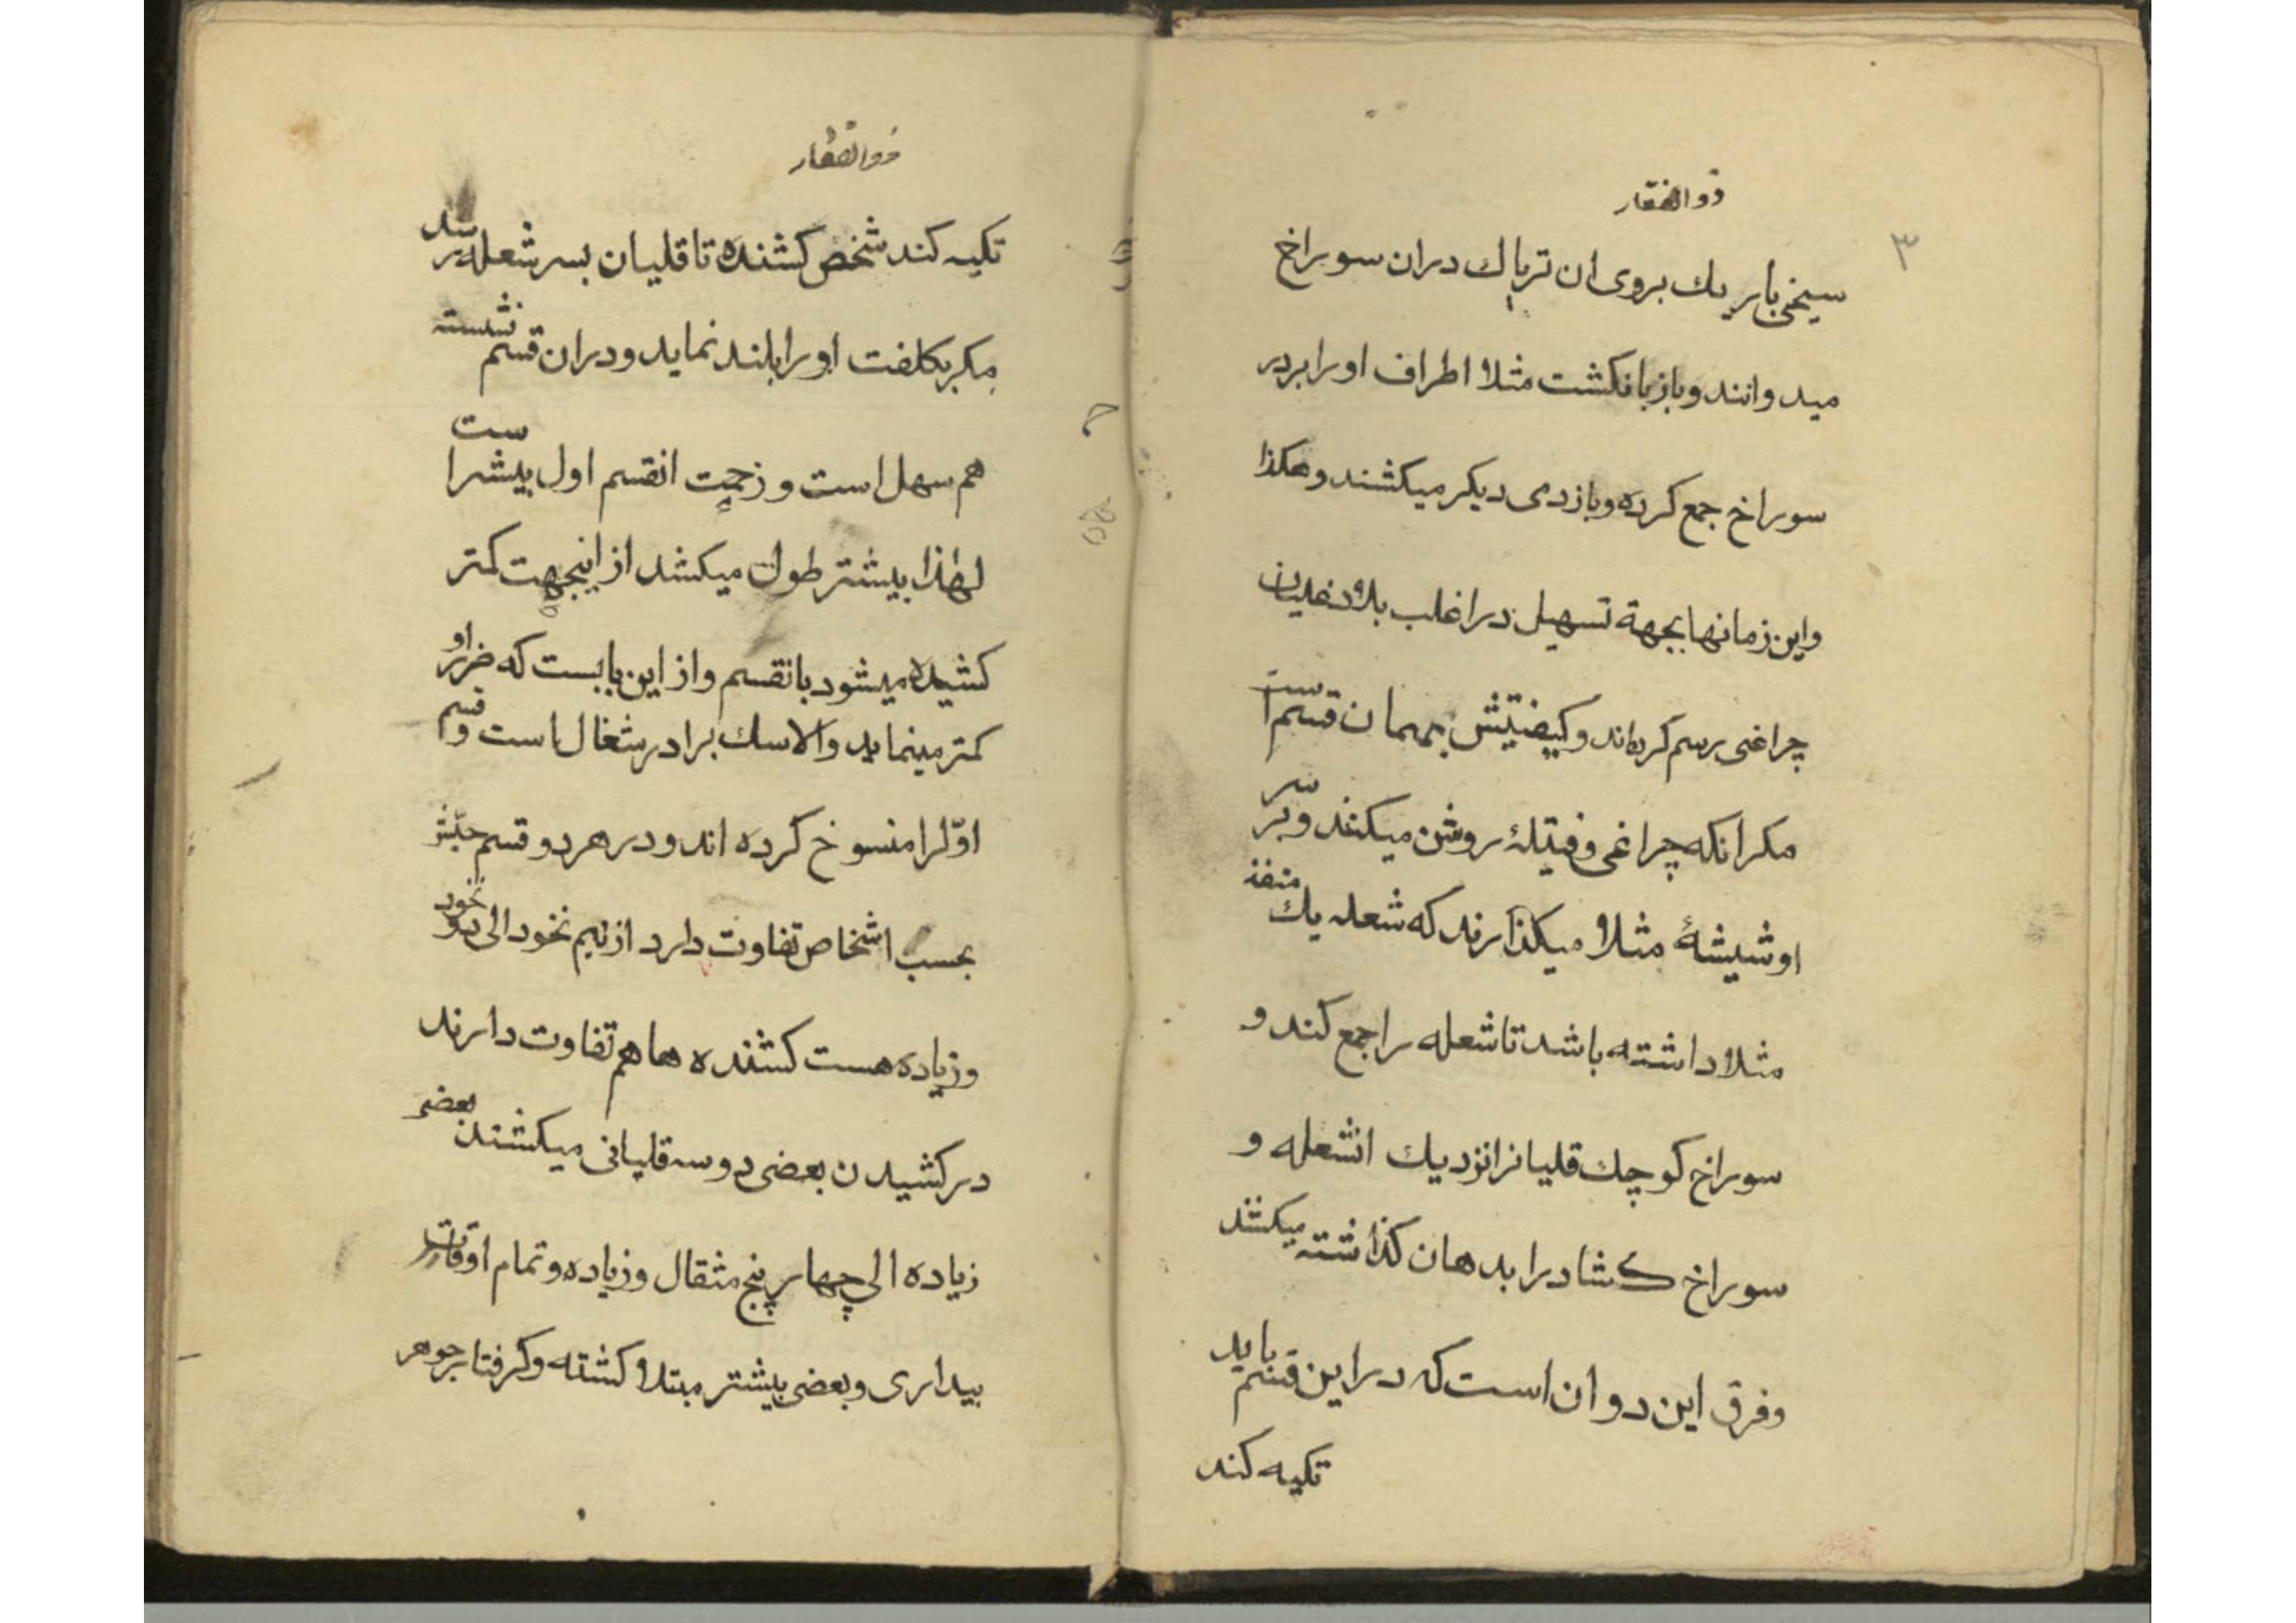 ذوالفقار
۳
سیخی باریك بروی ان تریاك دران سوراخ
میدوانند و باز بانکشت مثلا اطراف اورا بردر
سوراخ جمع کرده و بازدمی دیکر میکشند و هکذا
واین زمانها بجهة تسهیل در اغلب بلاد غلیان
چراغی رسم کرده‌اند و کیفیتش بهمان قسم است
مکر انکه چراغی و فتیلهٔ روشن میکنند و بر سر
او شیشهٔ مثلا میکذارند که شعله یك منفذ
مثلا داشته باشد تا شعله را جمع کند و
سوراخ کوچك قلیانرا نزدیك انشعله و
سوراخ کشاد را بدهان کذاشته میکشند
و فرق این دو ان است که در این قسم باید
تکیه کند
ذوالفقار
تکیه کند شخص کشنده تا قلیان بسر شعله برسد
مکر بکلفت اورا بلند نماید و دران قسم نشسته
هم سهل است و زحمت انقسم اول بیشتر است
لهذا بیشتر طول میکشد از اینجهت کمتر
کشیده میشود بانقسم و از این بابست که ضرر او
کمتر مینماید والا سك برادر شغال است و قسم
اوّلرا منسوخ کرده اند و در هر دو قسم
بحسب اشخاص تفاوت دارد از نیم نخود الی ده نخود
و زیاده هست کشنده ها هم تفاوت دارند
در کشیدن بعضی دو سه قلیانی میکشند بعضی
زیاده الی چهار پنج مثقال و زیاده و تمام اوقات
بیداری و بعضی بیشتر مبتلا کشته و کرفتار جوهر